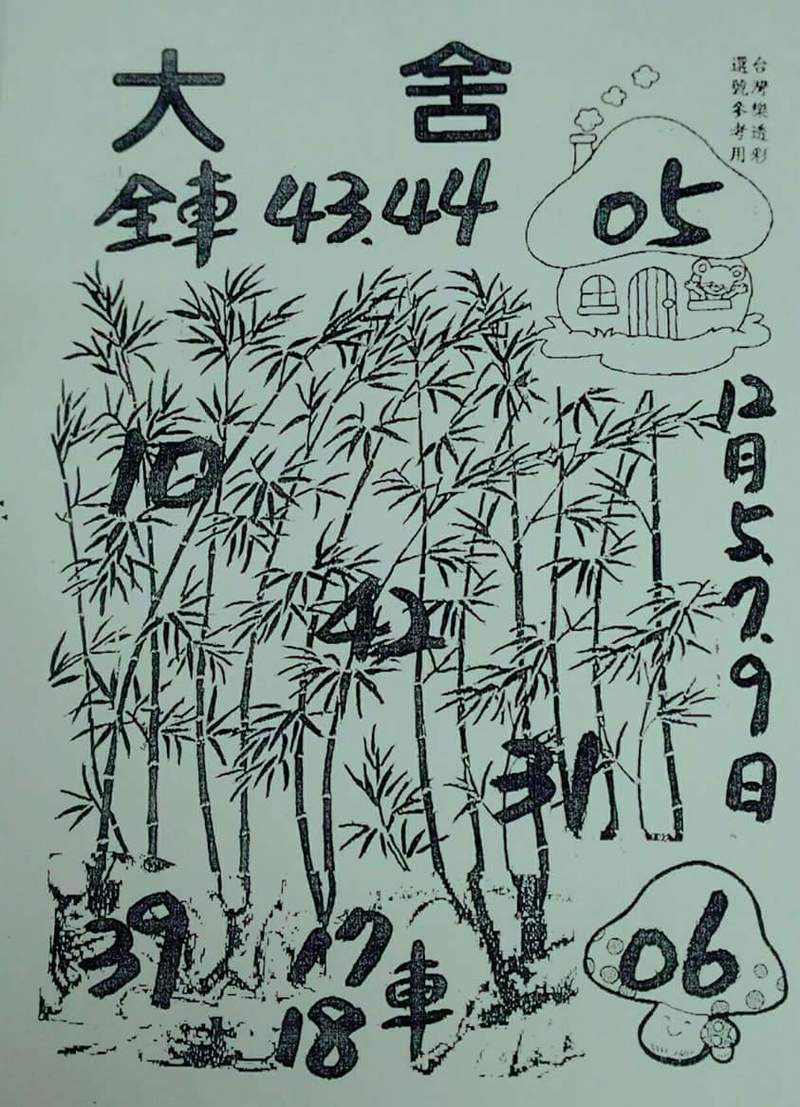 大舍
台灣樂透彩
選號參考用
全車 43.44
05
12月5.7.9日
10
42
31
39
17
18
車
06